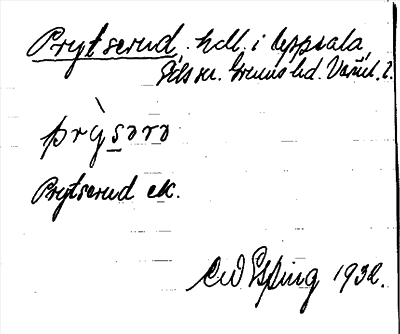 Prytserud, hdl. i Uppsala,
Eds sn. Grums hd. Värml. l.
prỳsərə
Prytserud ek.
C W Esping 1932.